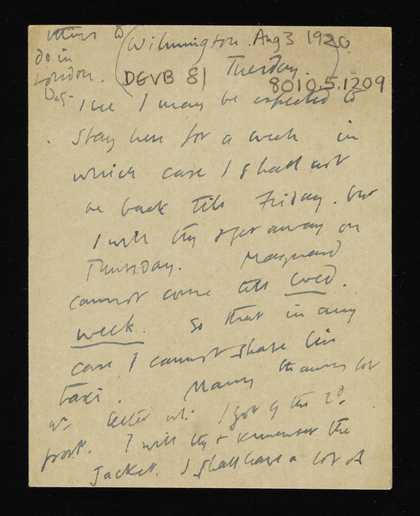 (Wilmington. Aug 3 1920
do in
London.
Tuesday.)
DGVB 81
8010.5.1209
I see I may be expected to
stay here for a week in
which case I shall not
be back till Friday. but
I will try & get away on
Thursday. Maynard
cannot come till Wed.
week. So that in any
case I cannot share his
taxi. Many thanks for
letter I got by the 2d
post. I will try & remember the
jacket. I shall have a lot of